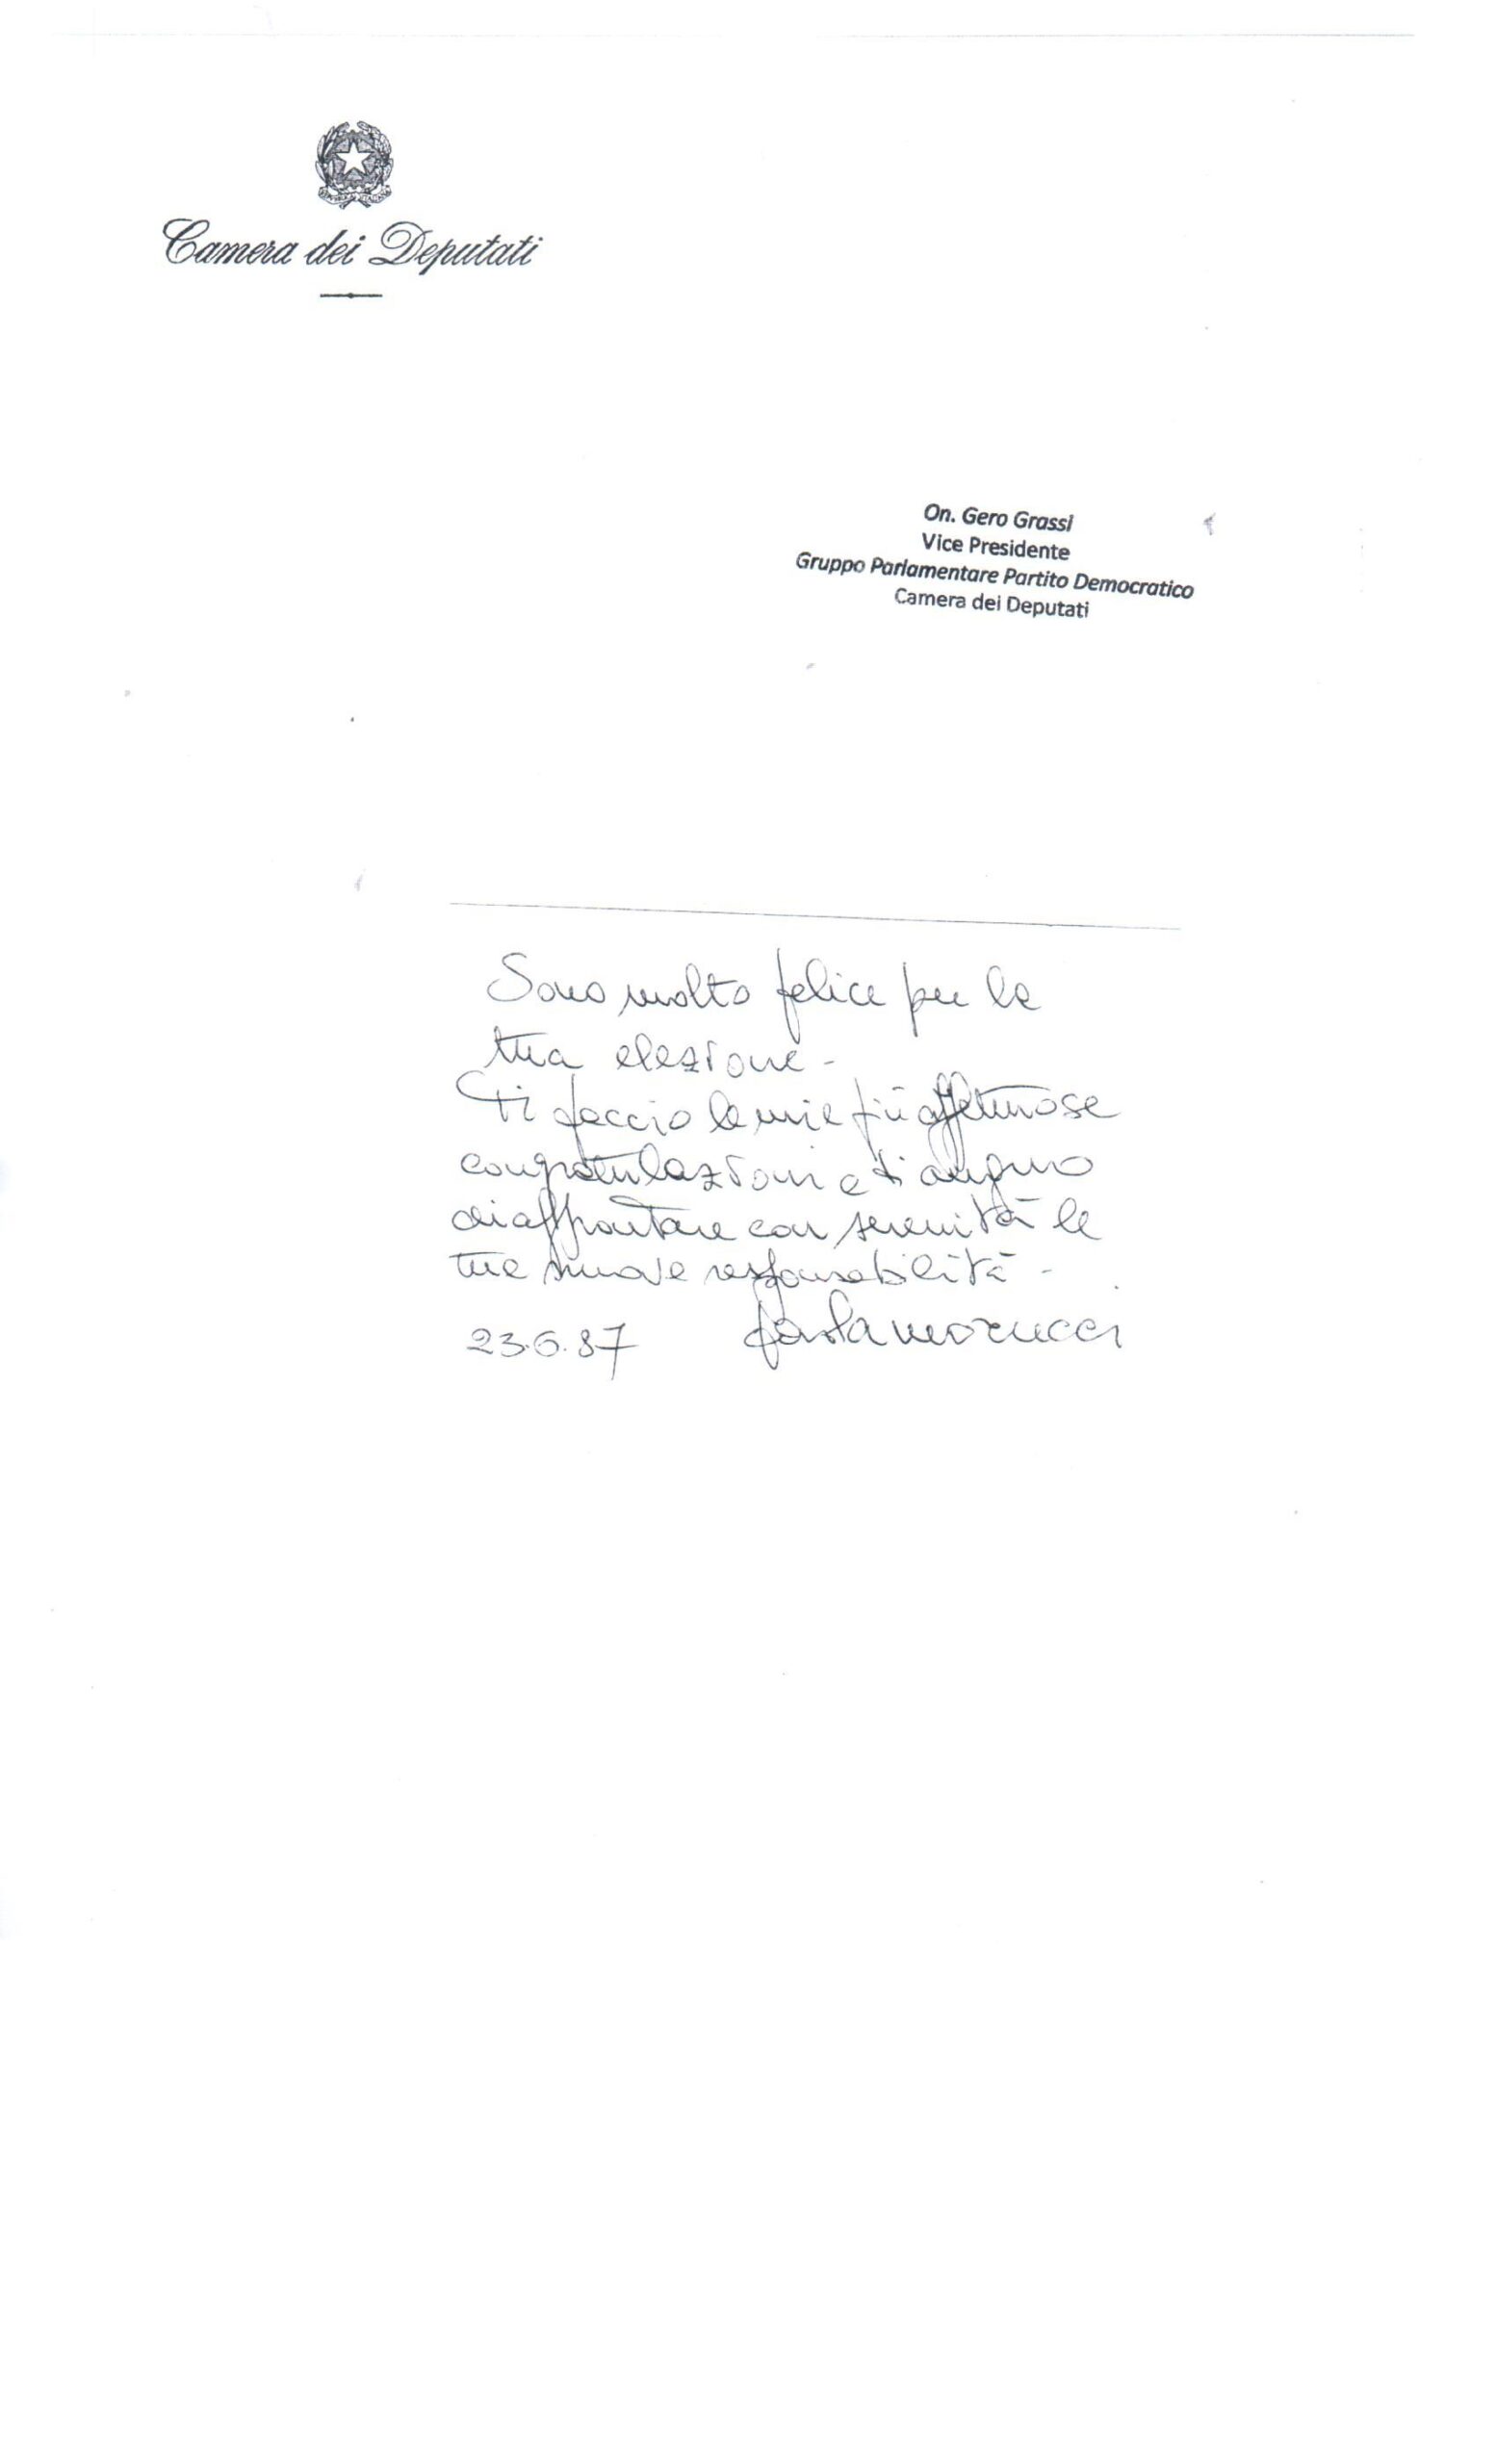 Camera dei Deputati
On. Gero Grassi
Vice Presidente
Gruppo Parlamentare Partito Democratico
Camera dei Deputati
Sono molto felice per la
tua elezione -
Ti faccio le mie più affettuose
congratulazioni e ti auguro
di affrontare con serenità le
tue nuove responsabilità -
23.6.87 morucci